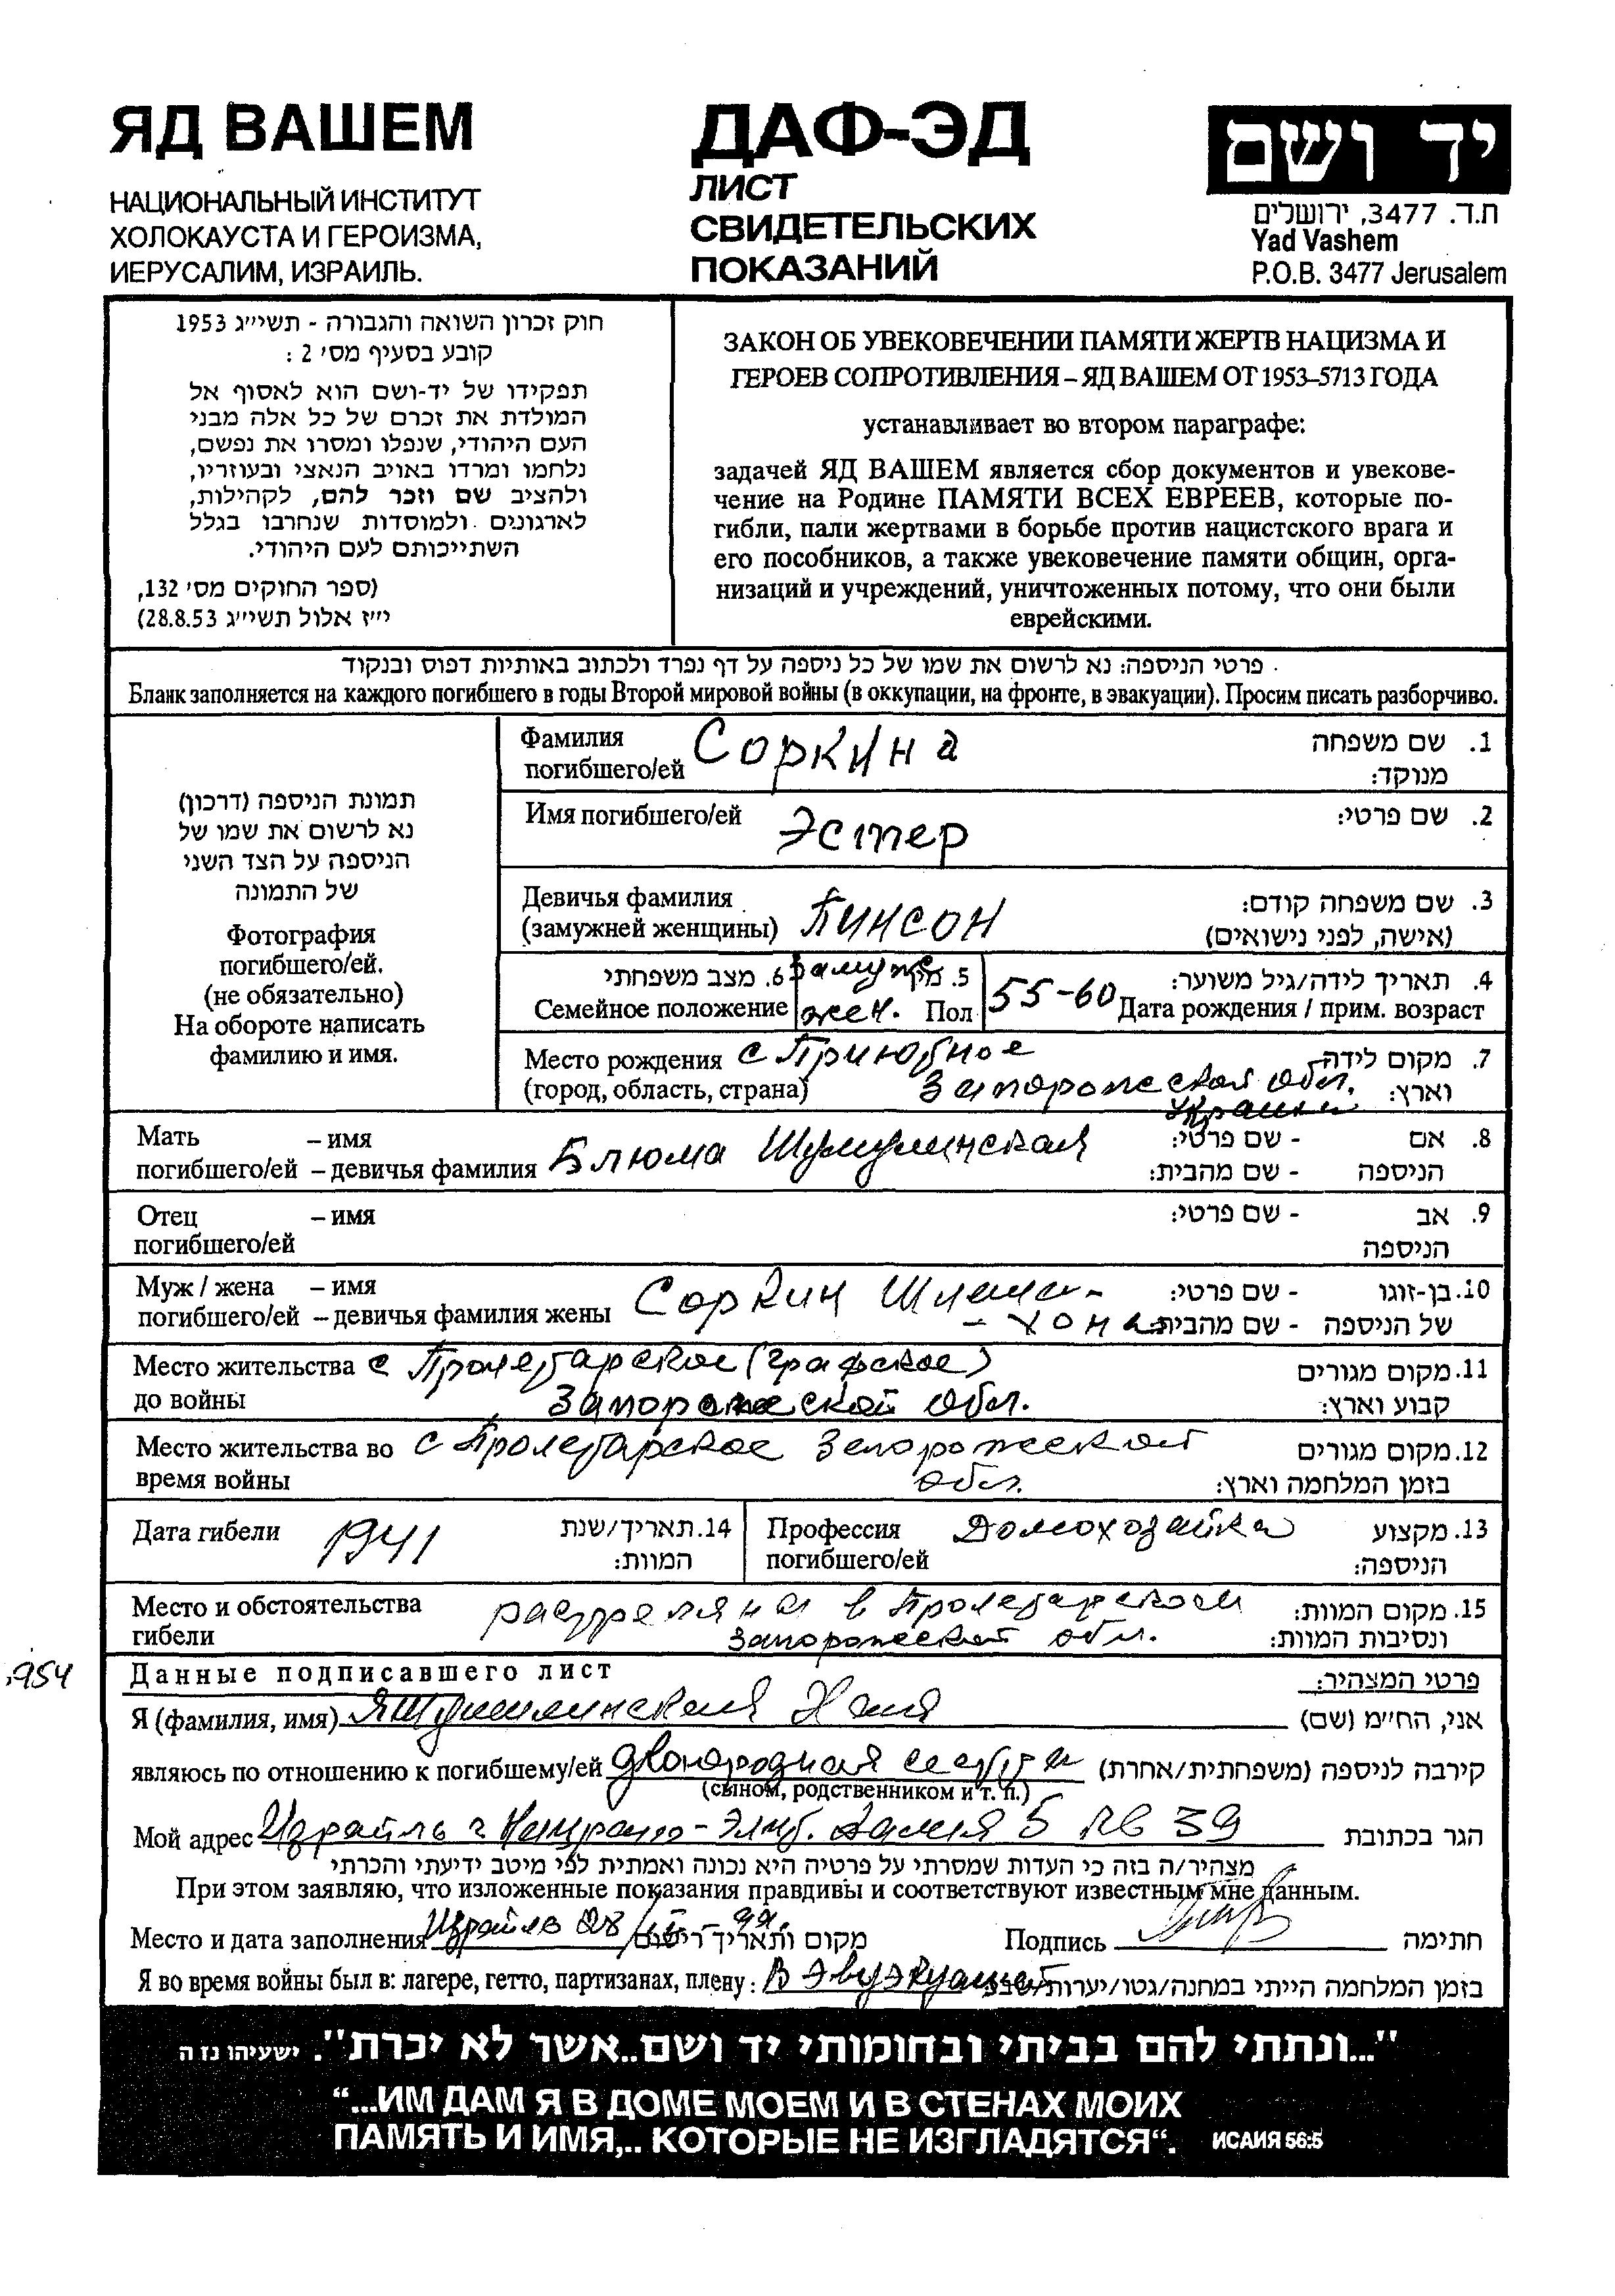 ЯД ВАШЕМ
НАЦИОНАЛЬНЫЙ ИНСТИТУТ
ХОЛОКАУСТА И ГЕРОИЗМА,
ИЕРУСАЛИМ, ИЗРАИЛЬ.
ДАФ-ЭД
ЛИСТ
СВИДЕТЕЛЬСКИХ
ПОКАЗАНИЙ
יד ושם
ת.ד. 3477, ירושלים
Yad Vashem
P.O.B. 3477 Jerusalem
חוק זכרון השואה והגבורה - תשי״ג 1953
קובע בסעיף מס׳ 2 :
תפקידו של יד-ושם הוא לאסוף אל
המולדת את זכרם של כל אלה מבני
העם היהודי, שנפלו ומסרו את נפשם,
נלחמו ומרדו באויב הנאצי ובעוזריו,
ולהציב שם וזכר להם, לקהילות,
לארגונים ולמוסדות שנחרבו בגלל
השתייכותם לעם היהודי.
(ספר החוקים מס׳ 132,
י״ז אלול תשי״ג 28.8.53)
ЗАКОН ОБ УВЕКОВЕЧЕНИИ ПАМЯТИ ЖЕРТВ НАЦИЗМА И
ГЕРОЕВ СОПРОТИВЛЕНИЯ – ЯД ВАШЕМ ОТ 1953–5713 ГОДА
устанавливает во втором параграфе:
задачей ЯД ВАШЕМ является сбор документов и увекове-
чение на Родине ПАМЯТИ ВСЕХ ЕВРЕЕВ, которые по-
гибли, пали жертвами в борьбе против нацистского врага и
его пособников, а также увековечение памяти общин, орга-
низаций и учреждений, уничтоженных потому, что они были
еврейскими.
פרטי הניספה: נא לרשום את שמו של כל ניספה על דף נפרד ולכתוב באותיות דפוס ובנקוד
Бланк заполняется на каждого погибшего в годы Второй мировой войны (в оккупации, на фронте, в эвакуации). Просим писать разборчиво.
תמונת הניספה (דרכון)
נא לרשום את שמו של
הניספה על הצד השני
של התמונה
Фотография
погибшего/ей.
(не обязательно)
На обороте написать
фамилию и имя.
Фамилия Соркина 1. שם משפחה
погибшего/ей מנוקד:
Имя погибшего/ей Эстер 2. שם פרטי:
Девичья фамилия 3. שם משפחה קודם:
(замужней женщины) Пинсон (אישה, לפני נישואים)
6. מצב משפחתי замуж 5. מין 4. תאריך לידה/גיל משוער:
Семейное положение жен. Пол 55-60 Дата рождения / прим. возраст
Место рождения с Приютное 7. מקום לידה
(город, область, страна) Запорожской обл. וארץ:
Украина
Мать – имя 8. אם - שם פרטי:
погибшего/ей – девичья фамилия Блюма Шумулинская הניספה - שם מהבית:
Отец – имя 9. אב - שם פרטי:
погибшего/ей הניספה
Муж / жена – имя Соркин 10. בן-זוגו - שם פרטי:
погибшего/ей – девичья фамилия жены של הניספה - שם מהבית:
Место жительства с Пролетарское (графское) 11. מקום מגורים
до войны Запорожской обл. קבוע וארץ:
Место жительства во с Пролетарское Запорожской 12. מקום מגורים
время войны обл. בזמן המלחמה וארץ:
Дата гибели 1941 14. תאריך/שנת המוות:
Профессия Домохозайка 13. מקצוע
погибшего/ей הניספה:
Место и обстоятельства растреляна в Пролетарском 15. מקום המוות:
гибели Запорожской обл. ונסיבות המוות:
954
Данные подписавшего лист פרטי המצהיר:
Я (фамилия, имя) אני, הח״מ (שם)
являюсь по отношению к погибшему/ей двоюродная сестра קירבה לניספה (משפחתית/אחרת)
(сыном, родственником и т. п.)
Мой адрес Израиль г. 5 кв 39 הגר בכתובת
מצהיר/ה בזה כי העדות שמסרתי על פרטיה היא נכונה ואמתית לפי מיטב ידיעתי והכרתי
При этом заявляю, что изложенные показания правдивы и соответствуют известным мне данным.
Место и дата заполнения Израиль מקום ותאריך רישום Подпись חתימה
Я во время войны был в: лагере, гетто, партизанах, плену: В בזמן המלחמה הייתי במחנה/גטו/יערות/שבי
"...ונתתי להם בביתי ובחומותי יד ושם..אשר לא יכרת". ישעיהו נז ה
“...ИМ ДАМ Я В ДОМЕ МОЕМ И В СТЕНАХ МОИХ
ПАМЯТЬ И ИМЯ,.. КОТОРЫЕ НЕ ИЗГЛАДЯТСЯ“. ИСАИЯ 56:5